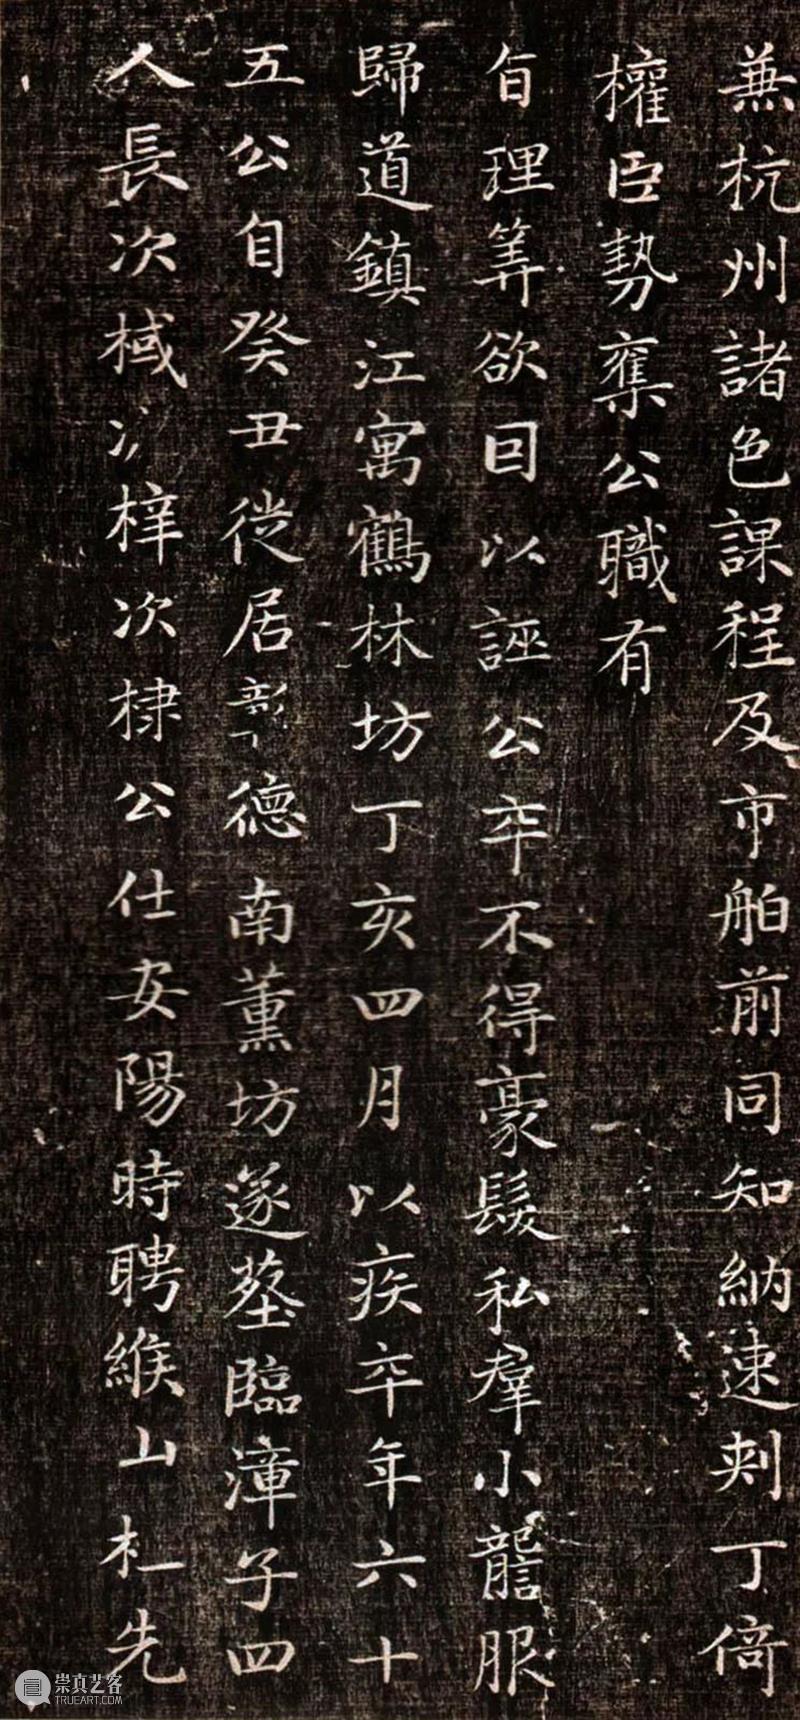 兼杭州諸色課程及市舶前同知納速剌丁倚
權臣勢奪公職有
旨理筭欲因以誣公卒不得豪髮私羣小讋服
歸道鎮江寓鶴林坊丁亥四月以疾卒年六十
五公自癸丑徙居彰德南薰坊遂塟臨漳子四
人長次棫次梓次棣公仕安陽時聘緱山杜先
崇真艺客
TRUEART.COM